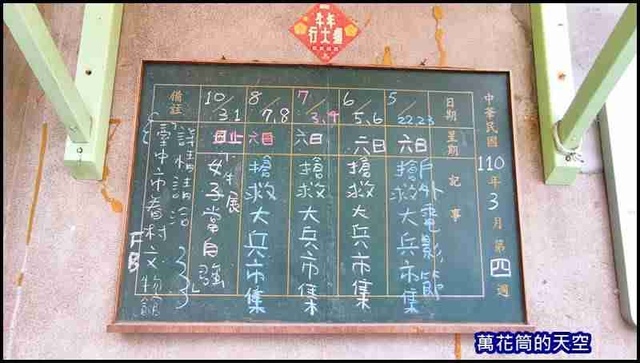 年年
行大運
中華民國110年3月第四週
日期 星期 記事
5/22.23 六日 戶外電影節
搶救大兵市集
6/5.6 六日 搶救大兵市集
7/3.4 六日 搶救大兵市集
8/7.8 六日 搶救大兵市集
10/31 日止 女子當自強
特展
備註 詳情請洽
臺中市眷村文物館
FB
萬花筒的天空